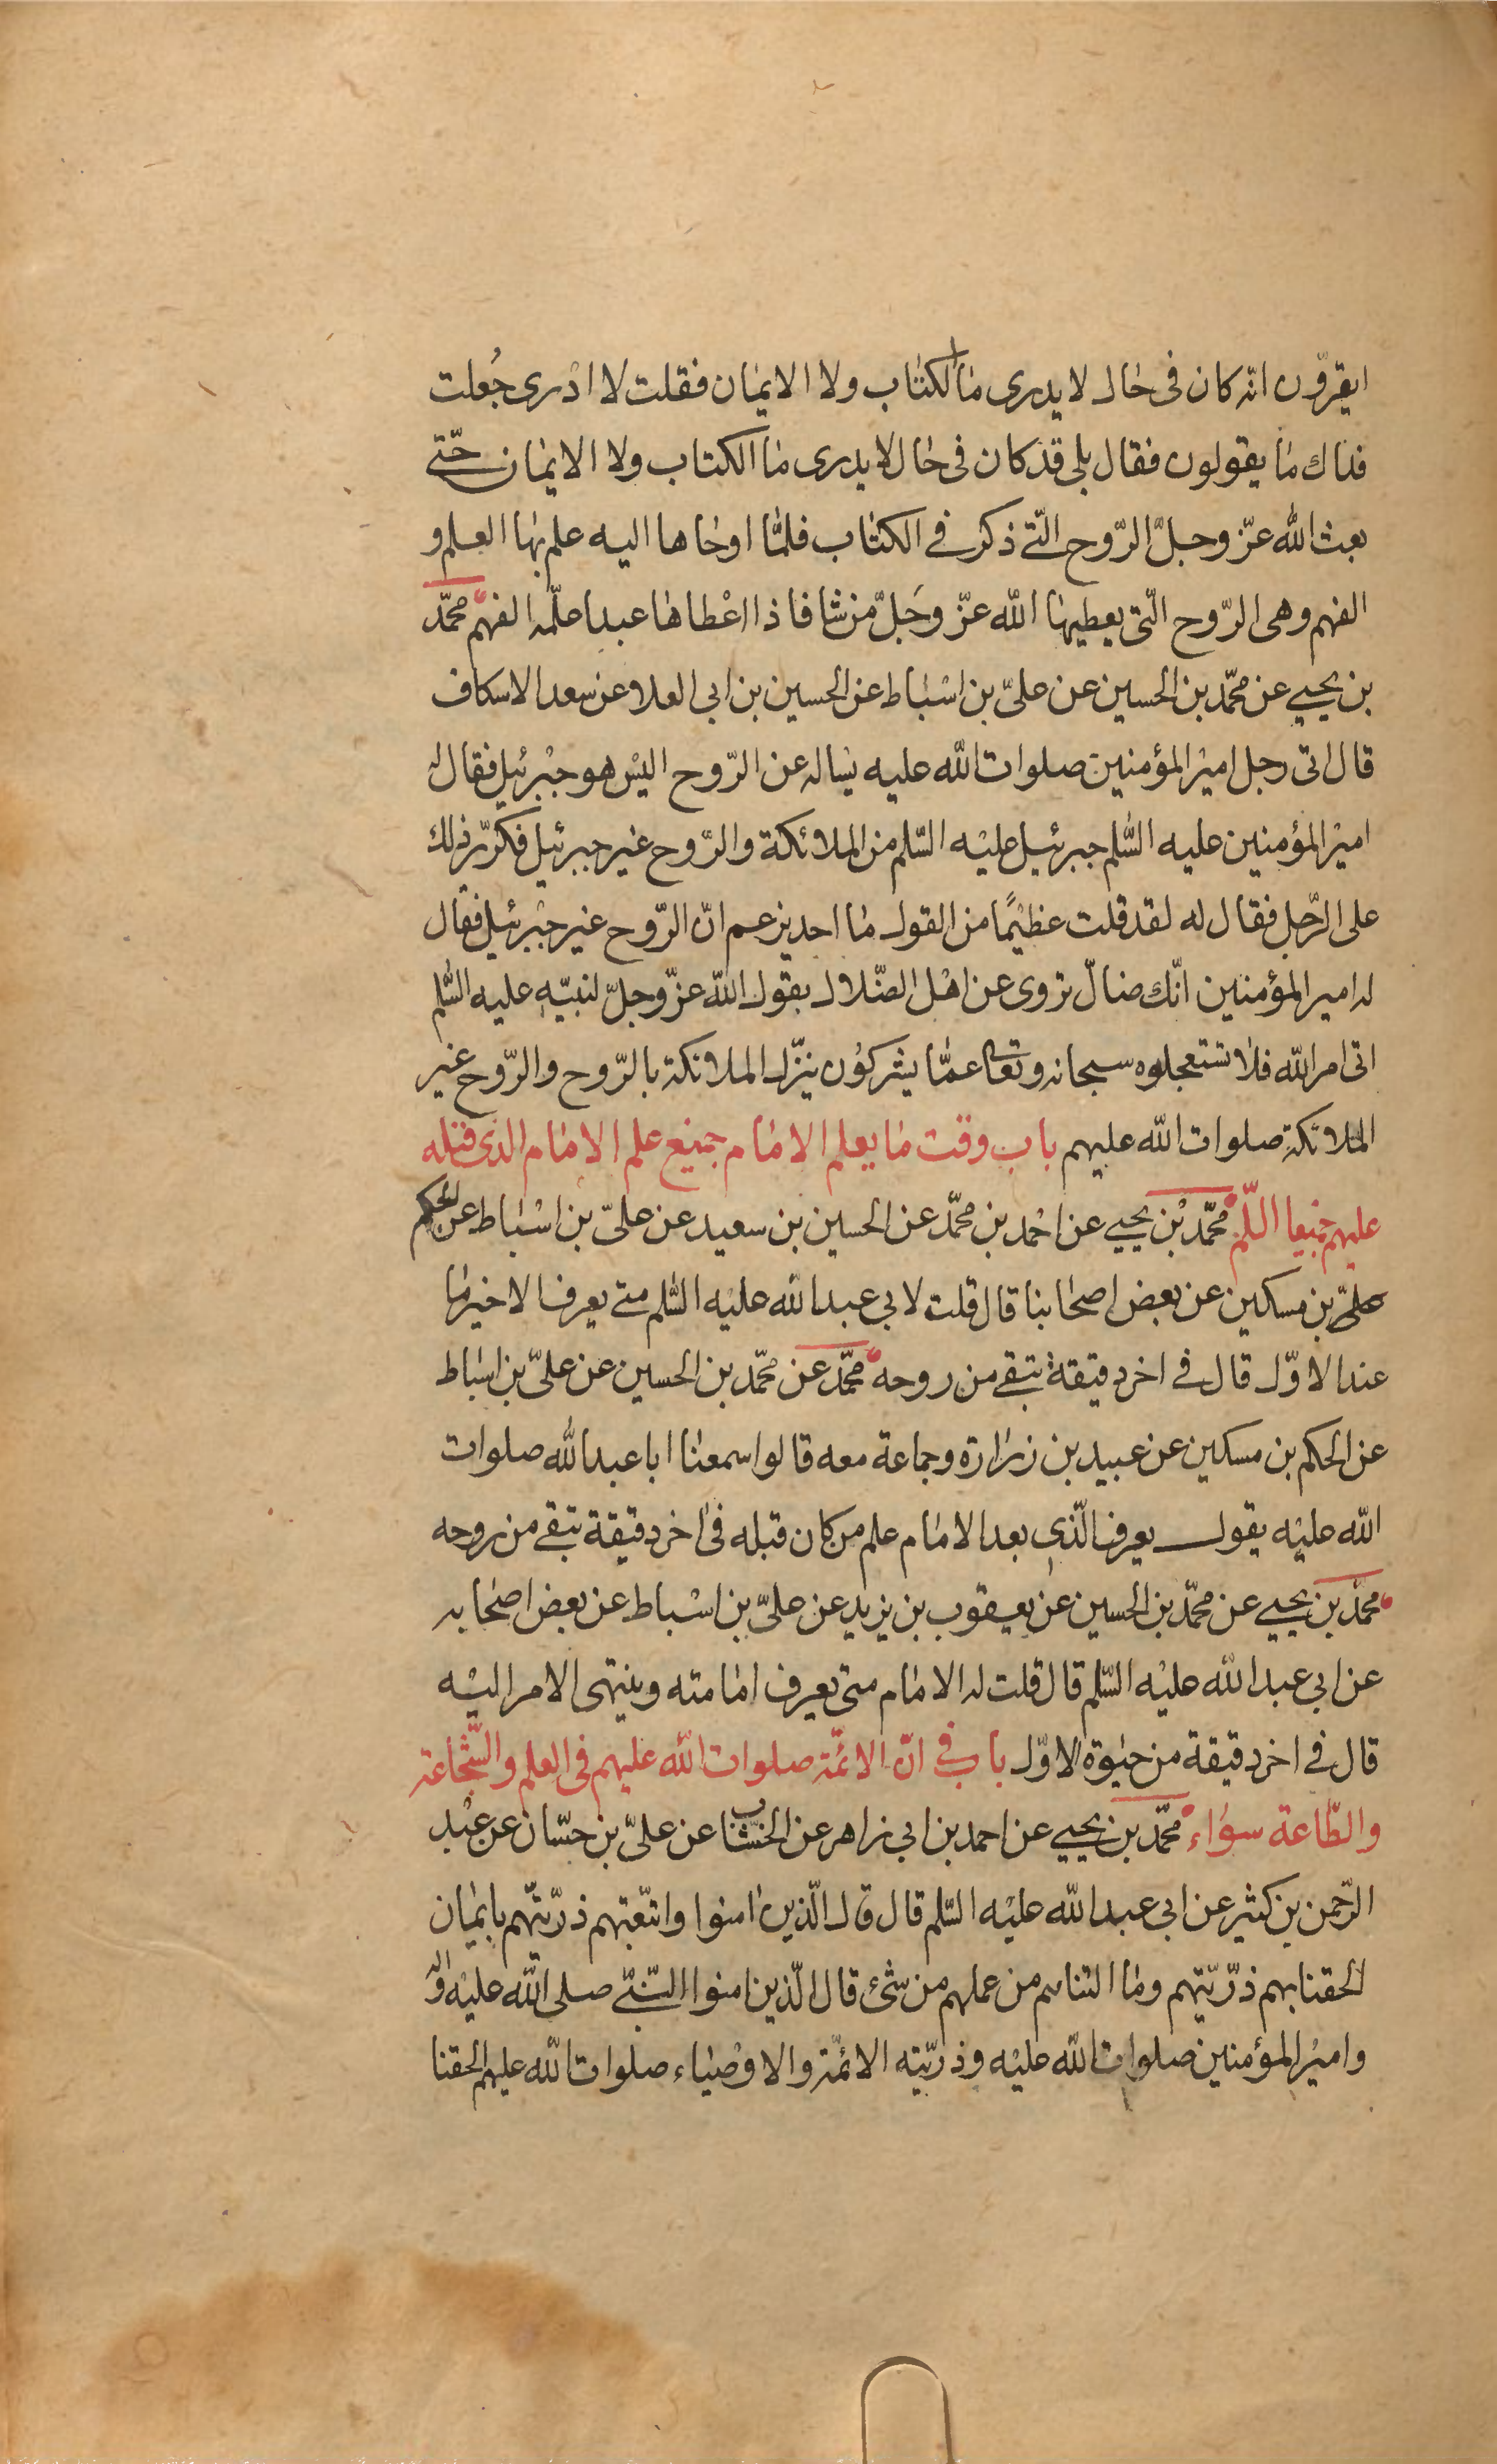 ايقرّون انه كان فى حال لا يدرى ما الكتاب ولا الايمان فقلت لا ادرى جُعلت
فداك ما يقولون فقال بلى قد كان فى حال لا يدرى ما الكتاب ولا الايمان حتّى
بعث الله عزّ وجلّ الرّوح الّتى ذكر فى الكتاب فلمّا اوحاها اليه علم بها العلم و
الفهم وهى الرّوح الّتى يعطيها الله عزّ وجَلّ من شا فاذا اعْطاها عبدا علّمه الفهم محمّد
بن يحيى عن محمّد بن الحسين عن علىّ بن اسْباط عن الحسين بن ابى العلا عن سعد الاسكاف
قال اتى رجل اميرْ المؤمنين صلوات الله عليه يساله عن الرّوح اليْس هو جبْرئيل فقال له
اميرْ المؤمنين عليه السّلم جبرئيل عليْه السّلم من الملائكة والرّوح غير جبرئيل فكرّر ذلك
على الرّجل فقال له لقد قلت عظيْمًا من القول ما احد يزعم انّ الرّوح غير جبْرئيل فقال
له امير المؤمنين انّك ضالّ تروى عن اهْل الضّلال يقول الله عزّ وجلّ لنبيّه عليه السّلم
اتى امر الله فلا تستعجلوه سبحانه وتعالى عمّا يشركوُن ينزّل الملائكة بالرّوح والرّوح غير
الملائكة صلوات الله عليهم باب وقت ما يعلم الامام جميْع علم الامام الذى قبله
عليهم جميعا السّلم محمّد بْن يحيى عن احْمد بن محمّد عن الحسين بن سعيد عن علىّ بن اسْباط عن الحكم
علىّ بن مسكين عن بعض اصحابنا قال قلت لابى عبد الله عليْه السّلم متى يعرف الاخير ما
عند الاوّل قال فى اخر دقيقة تبقى من روحه محمّد عن محمّد بن الحسين عن علىّ بن اسباط
عن الحكم بن مسكين عن عبيد بن زرارة وجماعة معه قالوا سمعنا ابا عبد الله صلوات
الله عليْه يقول يعرف الّذى بعد الامام علم من كان قبله فى اخر دقيقة تبقى من روحه
محمّد بن يحيى عن محمّد بن الحسين عن يعقوب بن يزيد عن علىّ بن اسْباط عن بعض اصحابه
عن ابى عبد الله عليْه السّلم قال قلت له الامام متى يعرف امامته وينتهى الامر اليْه
قال فى اخر دقيقة من حيوة الاوّل باب فى انّ الائمّة صلوات الله عليهم فى العلم والشّجاعة
والطّاعة سوَاء محمّد بن يحيى عن احمد بن ابى زاهر عن الخشّاب عن علىّ بن حسّان عن عبْد
الرّحمن بن كثير عن ابى عبد الله عليْه السّلم قال قال الّذين امنوا واتّبعتهم ذرّيّتهم بايمان
الحقنا بهم ذرّيّتهم وما التناهم من عملهم من شئ قال الّذين امنوا النّبىّ صلى الله عليْه وآله
واميْر المؤمنين صلوات الله عليْه وذرّيّته الائمّة والاوْصياء صلوات الله عليهم الحقنا